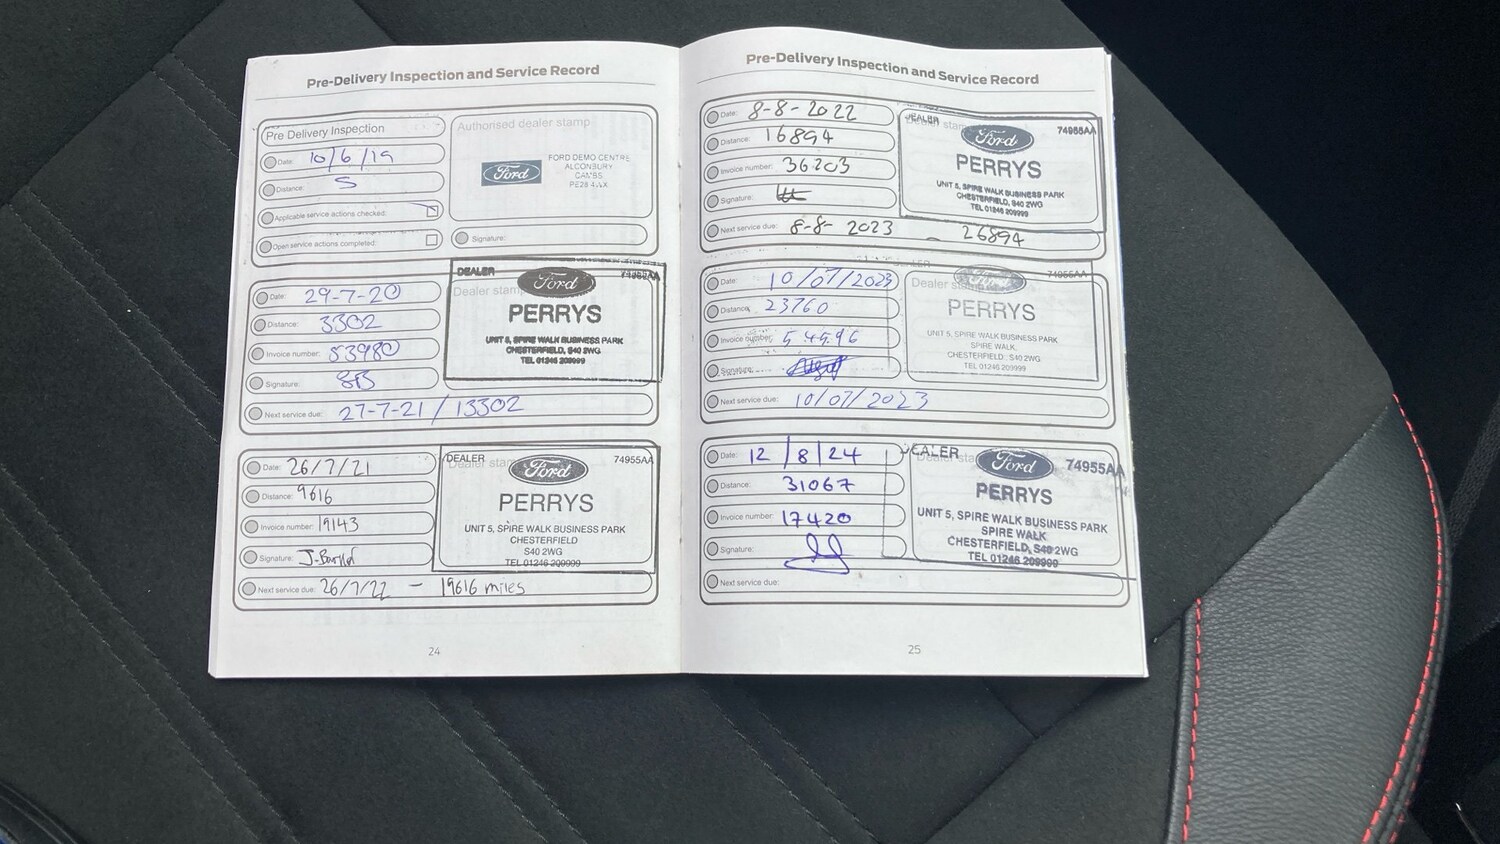 Pre-Delivery Inspection and Service Record
Pre Delivery Inspection
Date: 10/6/19
Distance: 5
Applicable service actions checked:
Open service actions completed:
Authorised dealer stamp
Ford
FORD DEMO CENTRE
ALCONBURY
CAMBS
PE28 4
Signature:
Date: 29-7-20
Distance: 3302
Invoice number: 53980
Signature:
Next service due: 27-7-21 / 13302
DEALER
Dealer stamp
Ford
PERRYS
UNIT 5, SPIRE WALK BUSINESS PARK
CHESTERFIELD, S40 2WG
TEL 01246 209999
Date: 26/7/21
Distance: 9616
Invoice number: 19143
Signature:
Next service due: 26/7/22 - 19616 miles
DEALER 74955AA
Dealer stamp
Ford
PERRYS
UNIT 5, SPIRE WALK BUSINESS PARK
CHESTERFIELD
S40 2WG
TEL 01246 209999
24
Pre-Delivery Inspection and Service Record
Date: 8-8-2022
Distance: 16894
Invoice number: 36203
Signature:
Next service due: 8-8- 2023 - 26894
DEALER 74955AA
Dealer stamp
Ford
PERRYS
UNIT 5, SPIRE WALK BUSINESS PARK
CHESTERFIELD, S40 2WG
TEL 01246 209999
Date: 10/07/2023
Distance: 23760
Invoice number: 54596
Signature:
Next service due: 10/07/2023
DEALER 74955AA
Dealer stamp
PERRYS
UNIT 5, SPIRE WALK BUSINESS PARK
SPIRE WALK,
CHESTERFIELD, S40 2WG
TEL 01246 209999
Date: 12/8/24
Distance: 31067
Invoice number: 17420
Signature:
Next service due:
DEALER 74955AA
Dealer stamp
Ford
PERRYS
UNIT 5, SPIRE WALK BUSINESS PARK
SPIRE WALK
CHESTERFIELD, S40 2WG
TEL 01246 209999
25